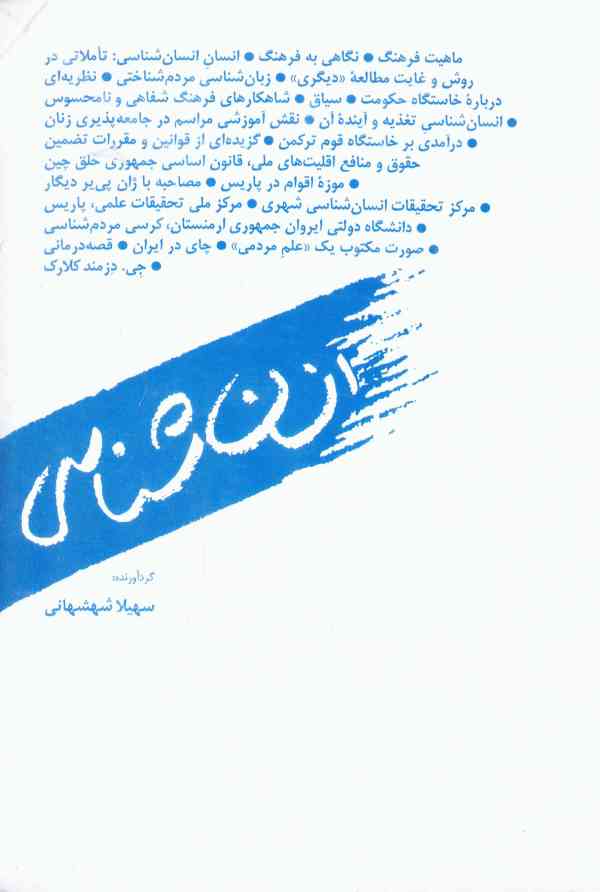 ماهیت فرهنگ ● نگاهی به فرهنگ ● انسانِ انسان‌شناسی: تأملاتی در
روش و غایت مطالعهٔ «دیگری» ● زبان‌شناسی مردم‌شناختی ● نظریه‌ای
دربارهٔ خاستگاه حکومت ● سیاق ● شاهکارهای فرهنگ شفاهی و نامحسوس
● انسان‌شناسی تغذیه و آیندهٔ آن ● نقش آموزشی مراسم در جامعه‌پذیری زنان
● درآمدی بر خاستگاه قوم ترکمن ● گزیده‌ای از قوانین و مقررات تضمین
حقوق و منافع اقلیت‌های ملی، قانون اساسی جمهوری خلق چین
● موزهٔ اقوام در پاریس ● مصاحبه با ژان پی‌یر دیگار
● مرکز تحقیقات انسان‌شناسی شهری ● مرکز ملی تحقیقات علمی، پاریس
● دانشگاه دولتی ایروان جمهوری ارمنستان، کرسی مردم‌شناسی
● صورت مکتوب یک «علمِ مردمی» ● چای در ایران ● قصه‌درمانی
● جِی. دِزمند کلارک
انسان‌شناسی
گردآورنده:
سهیلا شهشهانی